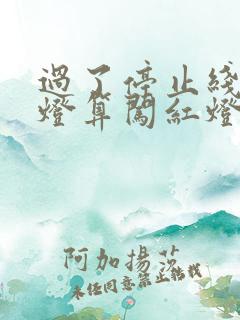 過了停止綫
燈算闖紅燈
阿加揚莎
未經同意禁止轉載